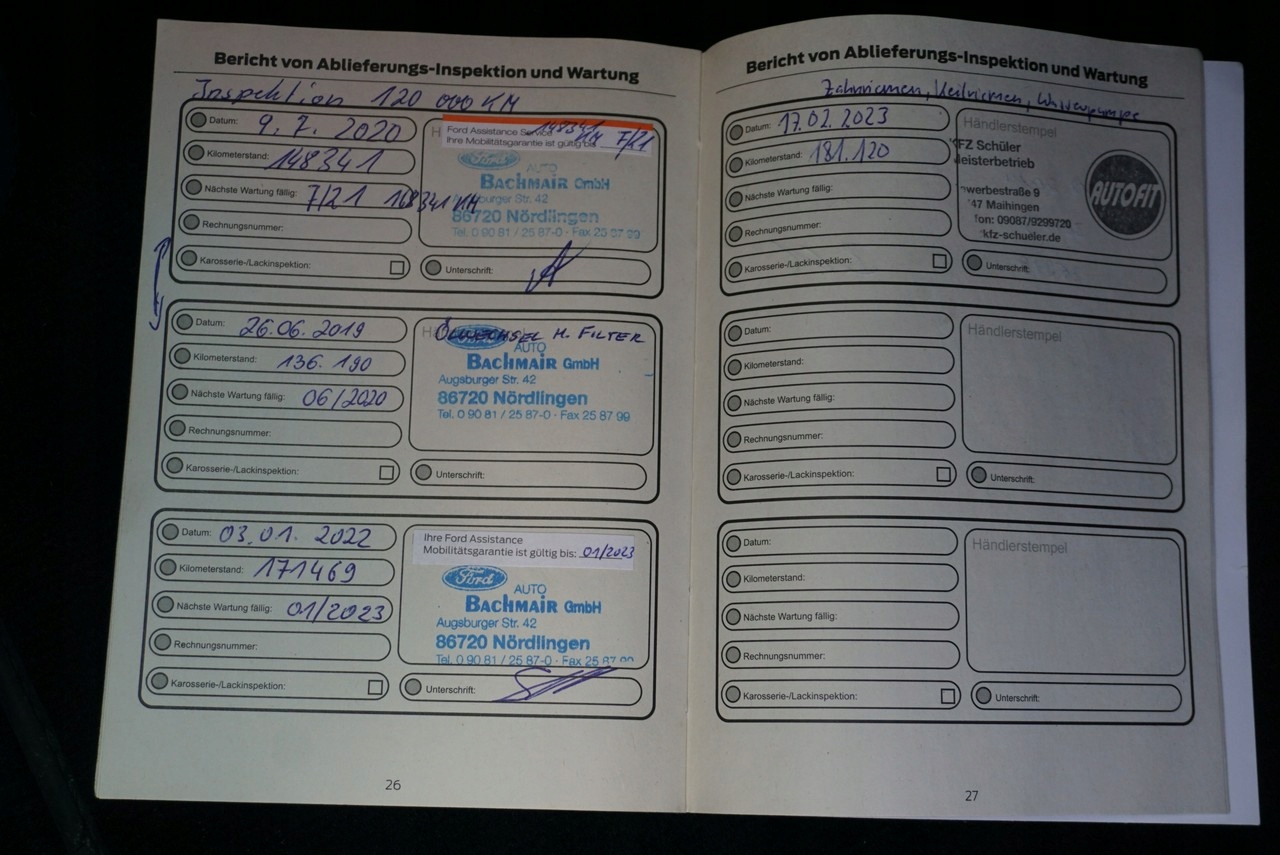 Bericht von Ablieferungs-Inspektion und Wartung
Inspektion 120 000 KM
Datum: 9. 7. 2020
Kilometerstand: 148341
Nächste Wartung fällig: 7/21 168341 KM
Rechnungsnummer:
Karosserie-/Lackinspektion:
Ford Assistance Service 148341
Ihre Mobilitätsgarantie ist gültig bis KM 7/21
Ford
AUTO
BACHMAIR GmbH
burger Str. 42
86720 Nördlingen
Tel. 0 90 81 / 25 87-0 · Fax 25 87 99
Unterschrift:
Datum: 26.06.2019
Kilometerstand: 136.190
Nächste Wartung fällig: 06/2020
Rechnungsnummer:
Karosserie-/Lackinspektion:
ÖLWECHSEL M. FILTER
AUTO
BACHMAIR GmbH
Augsburger Str. 42
86720 Nördlingen
Tel. 0 90 81 / 25 87-0 · Fax 25 87 99
Unterschrift:
Datum: 03.01. 2022
Kilometerstand: 171469
Nächste Wartung fällig: 01/2023
Rechnungsnummer:
Karosserie-/Lackinspektion:
Ihre Ford Assistance
Mobilitätsgarantie ist gültig bis: 01/2023
Ford
AUTO
BACHMAIR GmbH
Augsburger Str. 42
86720 Nördlingen
Tel. 0 90 81 / 25 87-0 · Fax 25 87 99
Unterschrift:
26
Bericht von Ablieferungs-Inspektion und Wartung
Zahnriemen, Keilriemen, Wasserpumpe
Datum: 17.02.2023
Kilometerstand: 181.120
Nächste Wartung fällig:
Rechnungsnummer:
Karosserie-/Lackinspektion:
Händlerstempel
KFZ Schüler
eisterbetrieb
werbestraße 9
47 Maihingen
fon: 09087/9299720
kfz-schueler.de
AUTOFIT
Unterschrift:
Datum:
Kilometerstand:
Nächste Wartung fällig:
Rechnungsnummer:
Karosserie-/Lackinspektion:
Händlerstempel
Unterschrift:
Datum:
Kilometerstand:
Nächste Wartung fällig:
Rechnungsnummer:
Karosserie-/Lackinspektion:
Händlerstempel
Unterschrift:
27